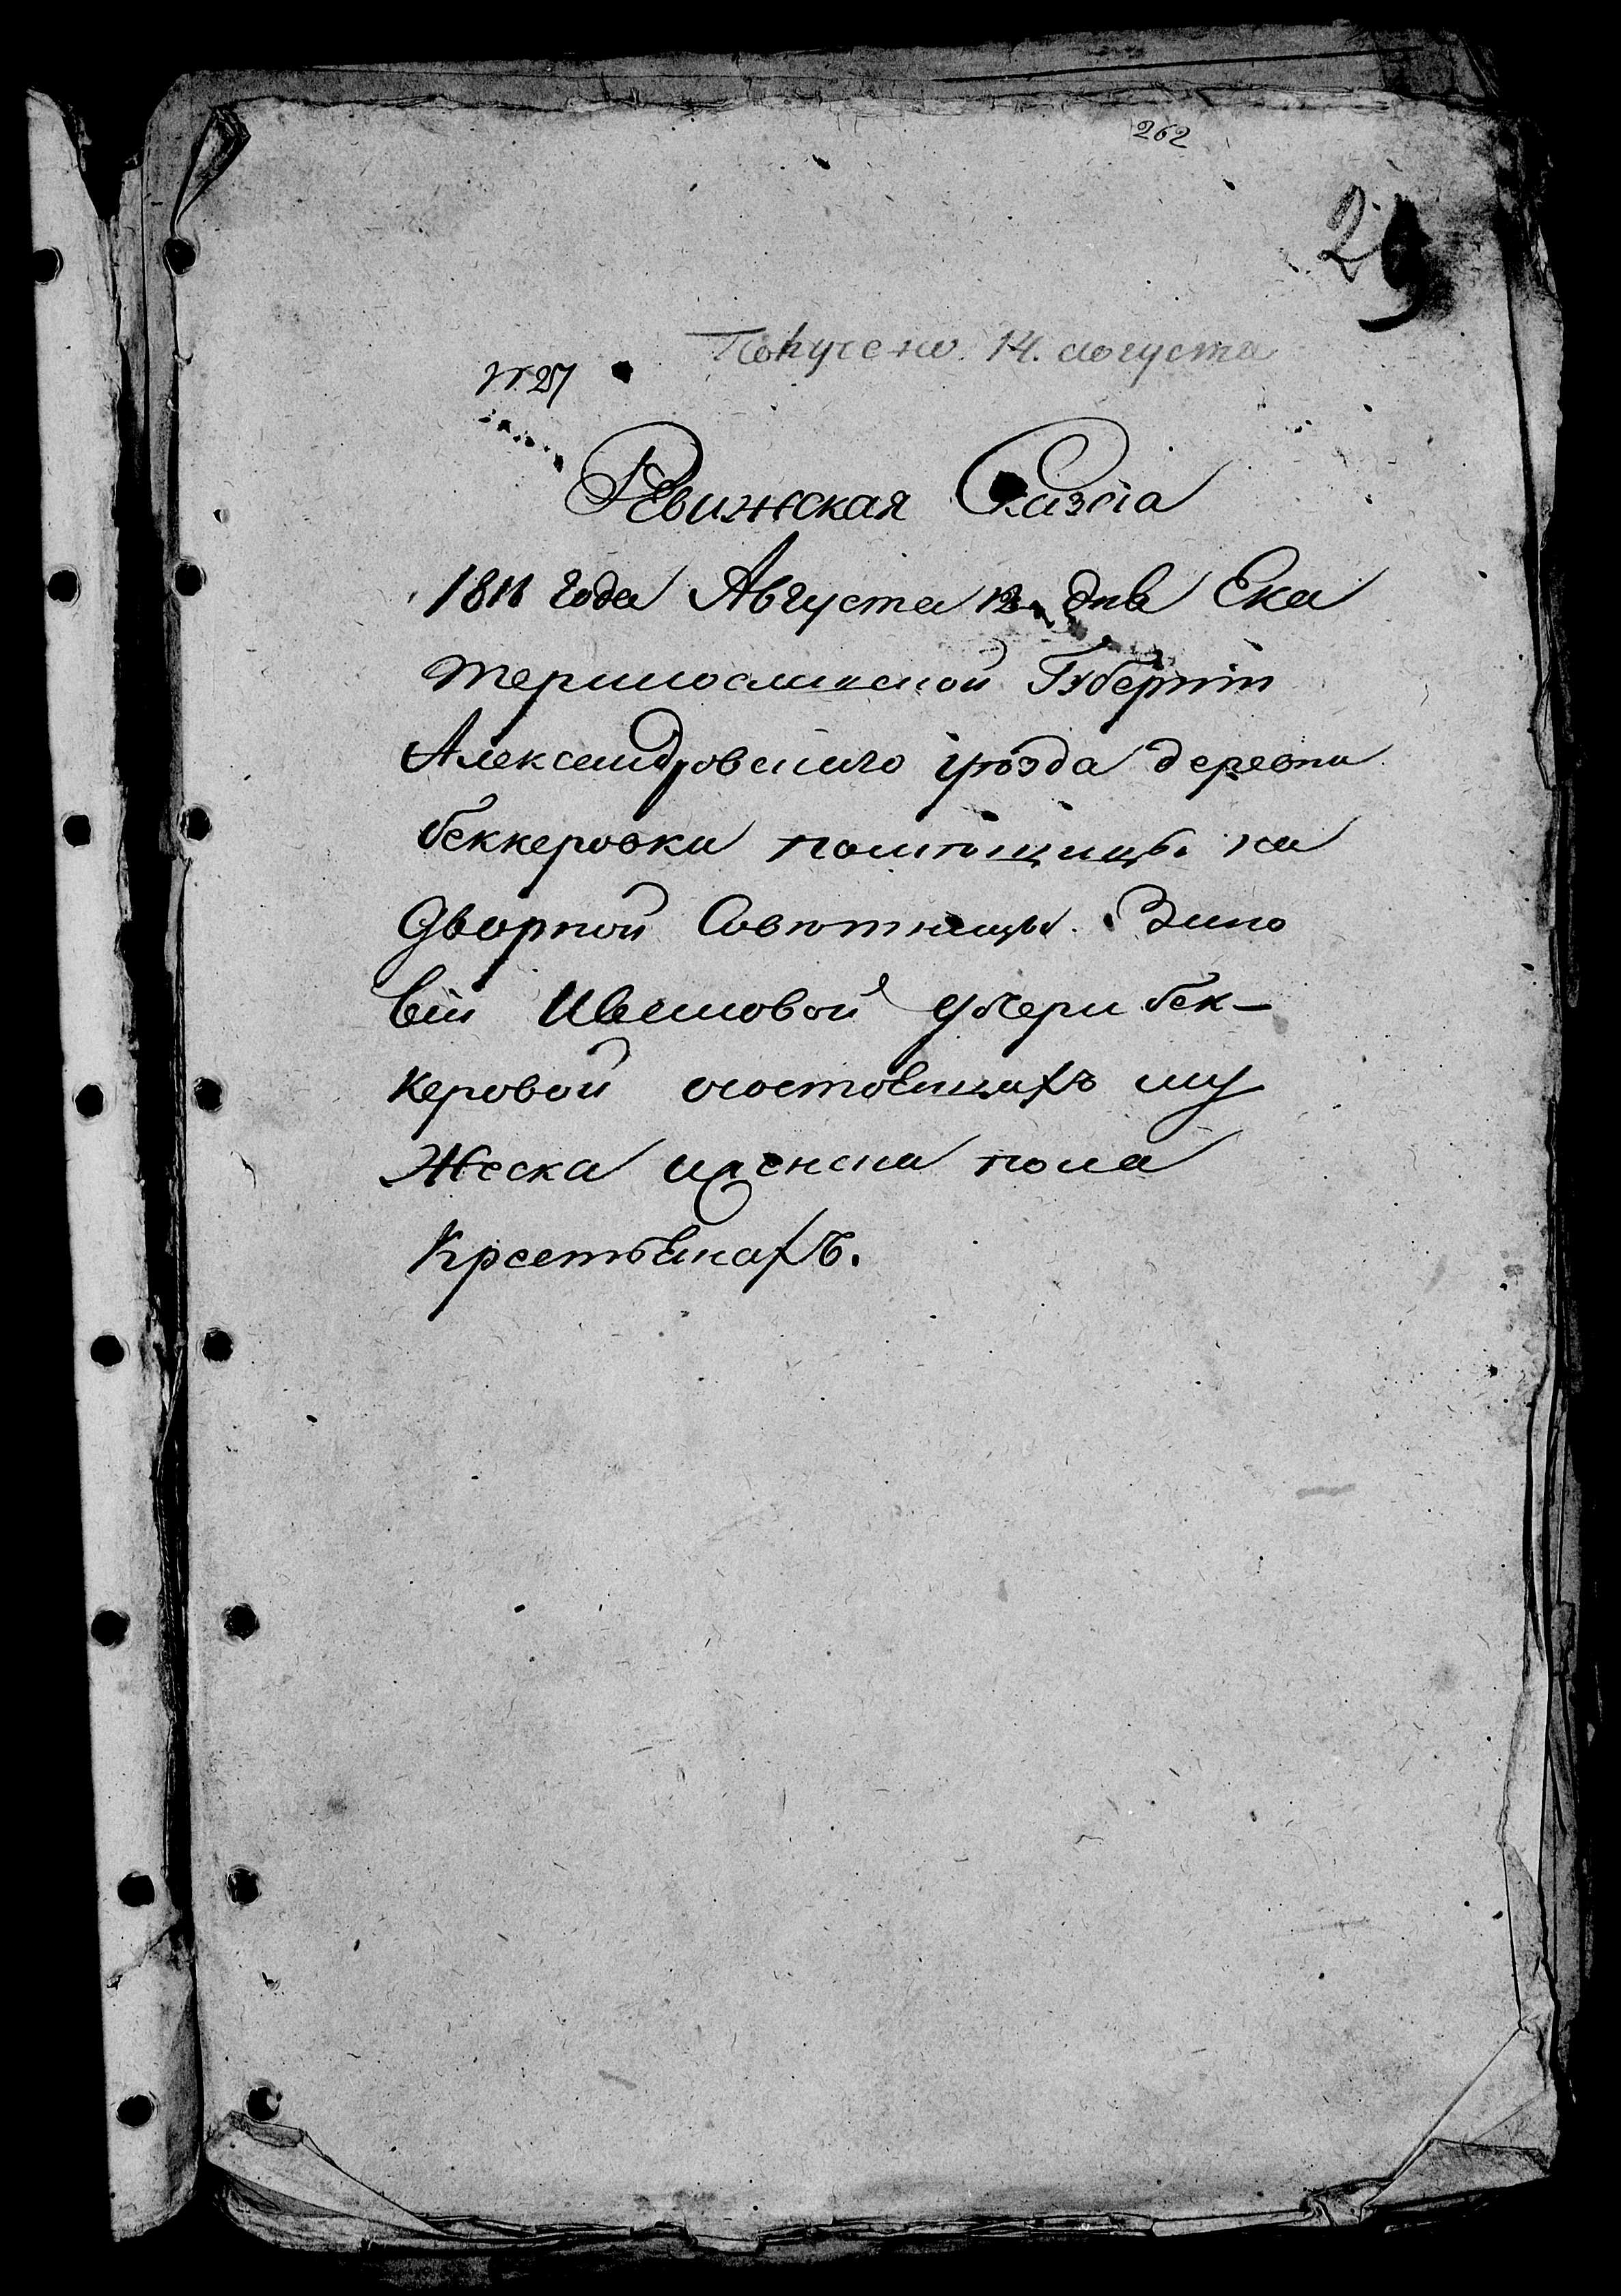 262
29
Получено 14. августа
№ 27
Ревижская Сказка
1811 года Августа 12 дня Ека
теринославской Губернии
Александровского уѣзда деревни
беккеровки помѣщицы на
дворной Совѣтницы Зино
віи Ивановой дочери бек-
керовой осостоящихъ му
жеска иженска пола
Крестьянахъ.